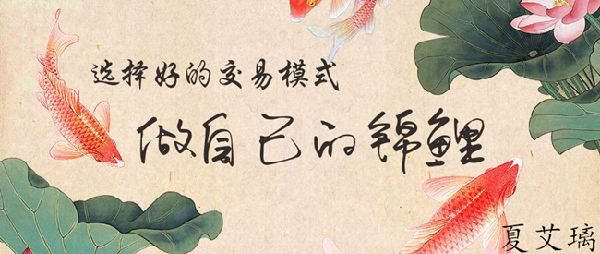 选择好的交易模式
做自己的锦鲤
夏艾璃